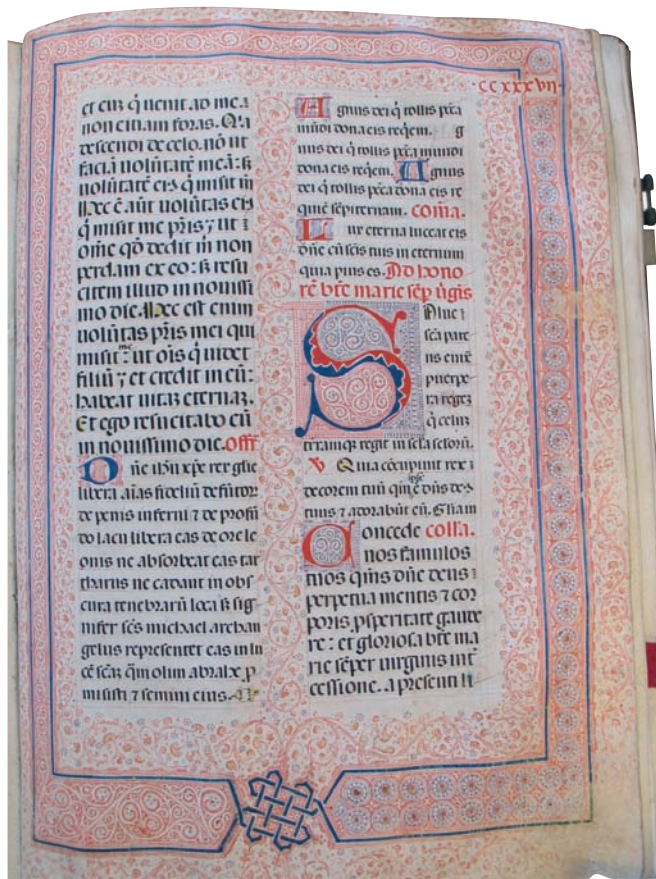 ·CCXXXVII·
et eū q̄ uenit ad me ñ
non eiciam foras. Q̄a
descendi de celo. nō ut
faciā uolūtatē meā: s̄
uolūtatē ei9 q̄ misit m̄
Hec ē aūt uoluntas ei9
q̄ misit me p̄ris ⁊ ut
om̄e qd̄ dedit m̄ non
perdam ex eo: s̄ resu
citem illud in nouissi
mo die. Hec est enim
uolūtas p̄ris mei qui
misit me: ut oīs q̄ uidet
filiū ⁊ et credit in eū:
habeat uitaȝ eternaȝ.
Et ego resucitabo eū
in nouissimo die. Off̄
Dn̄e ih̄u xp̄e rex glīe
libera aīas fideliū defūtoꝝ
de penis inferni ⁊ de profū
do lacu libera eas de ore le
onis ne absorbeat eas tar
tharus ne cadant in obs
cura tenebrarū loca s̄ sig
nifer sc̄s michael archan
gelus representet eas in lu
cē sc̄aȝ q̄m olim abrahe ꝓ
misisti ⁊ semini eius.
Agnus dei q̄ tollis pc̄ta
mūdi dona eis reqȩ̄m. g
nus dei q̄ tollis pc̄ta mundi
dona eis reqȩ̄m. Agnus
dei q̄ tollis pc̄ta dona eis re
quiē sēpiternam. com̄a.
Lux eterna luceat eis
dn̄e cū sc̄is tuis in eternum
quia pius es. Ad hono
rē bt̄e marie sēp ūgīs
Salue
sc̄a pare
ns enix̄
puerpe
ra regeȝ
q̄ celuȝ
terramqȝ regit in sc̄la sc̄lorū.
℣ Quia cōcupiuit rex
decorem tuū qm̄ ip̄e ē dn̄s de9
tuus ⁊ adorabūt eū. Gl̄iam
Concede coll̄a.
nos famulos
tuos qm̄s dn̄e deus
perpetua mentis ⁊ cor
poris ꝓsperitate gaude
re: et gloriosa bt̄e ma
rie sēper uirginis int̄
cessione. a presenti li